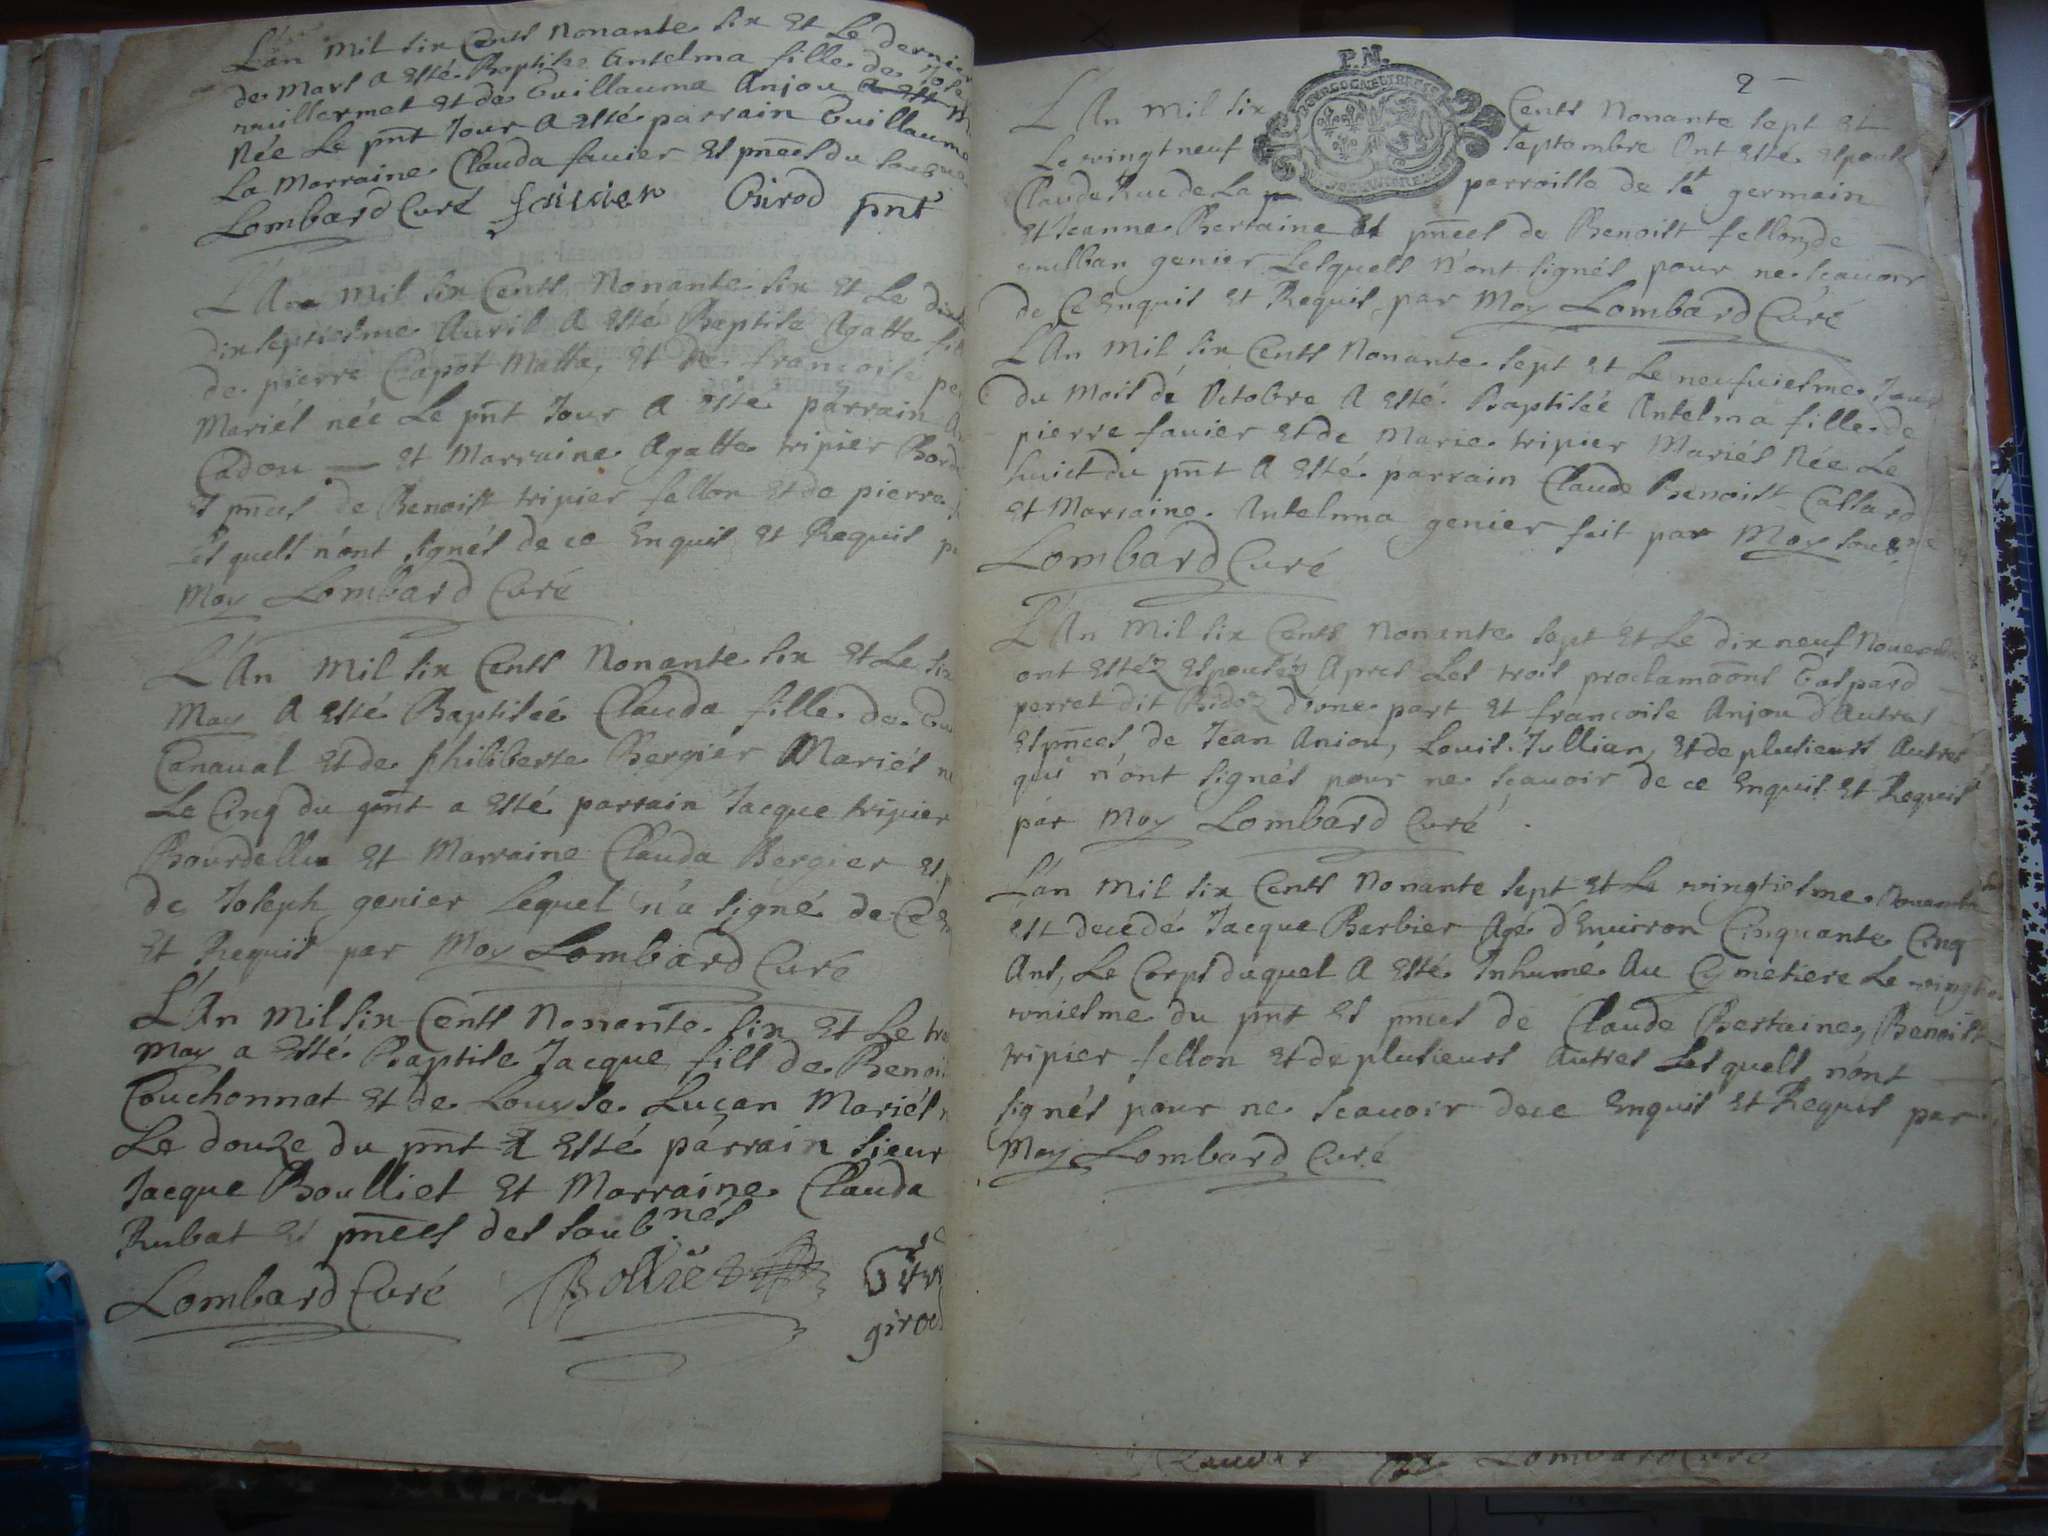 L'an mil six Cents Nonante six Et Le dernier
de Mars a esté Baptisée Antelma fille de
vuillermet et de Guillauma Anjou
Née Le pnt Jour A esté parrain Guillaume
La Marraine Clauda fauier Es pnces du soubs
Lombard Curé fauier Girod pnt
L'An mil six Cents Nonante six et Le
dixseptiesme Auril A Esté Baptise Agatte
de pierre Capot Matta, et de francoise
Mariés née Le pnt Jour A Este parrain
Cadou et Marraine Agatte tripier
Es pnces de Benoist tripier fellon et de pierre
Lesquels n'ont signés de ce Enquis Et Requis
Moy Lombard Curé
L'An Mil six Cents Nonante six Et Le
May A Esté Baptiseé Clauda fille de
Canaual Et de philiberte Bergier Mariés
Le Cinq du pnt a Esté parrain Jacque tripier
Bourdellin Et Marraine Clauda Bergier Es
de Joseph genier Lequel n'a signé de Ce
Et Requis par Moy Lombard Curé
L'An Mil six Cents Nonante six Et Le
May a Esté Baptise Jacque fils de
Couchonnat Et de Louyse Luçan Mariés
Le douze du pnt A Esté parrain sieur
Jacque Boulliet Et Marraine Clauda
Rubat Es pnces des soubnés
Lombard Curé Bolliet
girod
P.N.
2
L An Mil six Cents Nonante sept Et
Le vingtneuf Septambre Ont Esté Espousé
Claude Rue de La parroisse de St germain
Et Jeanne Bertaine Es pnces de Benoist fellon, de
genier Lesquels N'ont signés pour ne scauoir
de Ce Enquis Et Requis par Moy Lombard Curé
L'An Mil six Cents Nonante sept Et Le neufuiesme Jour
du Mois de Octobre A Esté Baptiseé Antelma fille de
pierre fauier Et de Marie tripier Mariés Née Le
huict du pnt A Esté parrain Claude Benoist Callard
Et Marraine Antelma genier fait par Moy
Lombard Curé
L'An Mil six Cents Nonante sept Et Le dix neuf Nouembre
ont Estéz Espouséz Apres Les trois proclamaons Gaspard
perret dit Bidoz d'vne part Et francoise Anjou d'Autre
Es pnces de Jean Aniou, Louis Jullian, Et de plusieurs Autres
qui n'ont signés pour ne scauoir de ce Enquis Et Requis
par Moy Lombard Curé
L'an Mil six Cents Nonante sept Et Le vingtiesme Nouembre
Est decedé Jacque Barbier Agé d'Enuiron Cinquante Cinq
Ans, Le Corps duquel A Esté Inhumé Au Cymetiere Le vingt
vniesme du pnt Es pnces de Claude Bertaine, Benoist
tripier fellon Et de plusieurs Autres Lesquels n'ont
signés pour ne scauoir de ce Enquis Et Requis par
Moy Lombard Curé
Lombard Curé